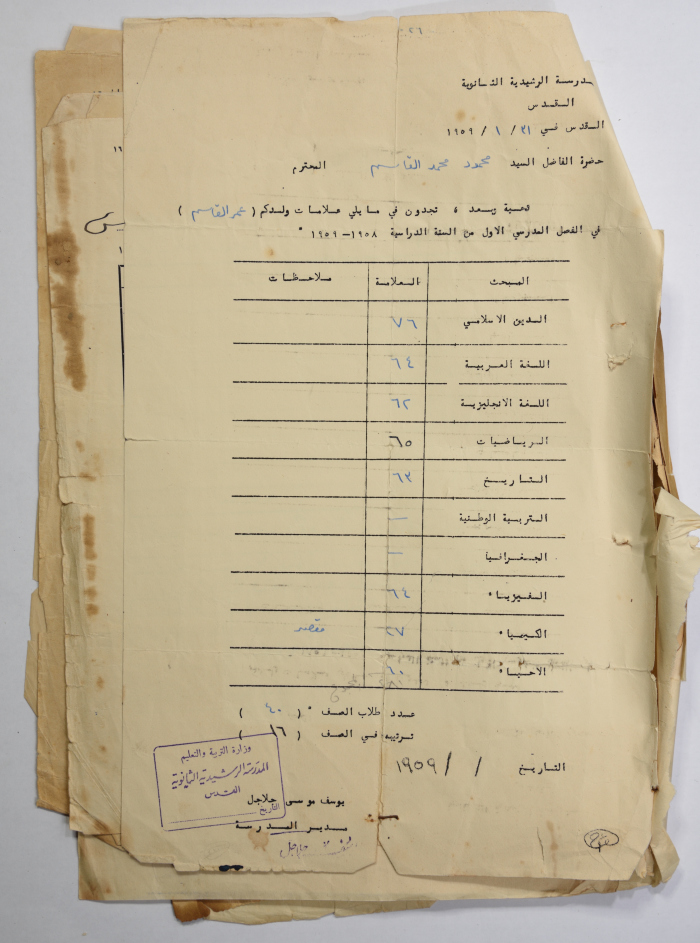 ٢٦
مدرسة الرشيدية الثانوية
القدس
القدس في ٣١ / ١ / ١٩٥٩
حضرة الفاضل السيد محمود محمد القاسم المحترم
تحية وبعد ، تجدون في مايلي علامات ولدكم ( عمر القاسم )
في الفصل المدرسي الاول من السنة الدراسية ١٩٥٨-١٩٥٩ .
المبحث العلامة ملاحظات
الدين الاسلامي ٧٦
اللغة العربية ٦٤
اللغة الانجليزية ٦٢
الرياضيات ٦٥
التاريخ ٦٣
التربية الوطنية —
الجغرافيا —
الفيزياء ٦٤
الكيمياء ٢٧ مقصر
الاحياء ٦٠
عدد طلاب الصف ( ٤٠ )
ترتيبه في الصف ( ١٦ )
التاريخ / / ١٩٥٩
وزارة التربية والتعليم
المدرسة الرشيدية الثانوية
القدس
التاريخ
يوسف موسى حلاجل
مدير المدرسة